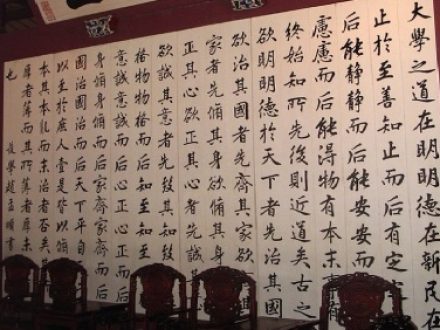 大學之道在明明德在新民在
止於至善知止而后有定
后能靜靜而后能安安而
慮慮而后能得物有本末事
終始知所先後則近道矣古之
欲明明德於天下者先治其國
欲治其國者先齊其家欲
家者先脩其身欲脩其身
正其心欲正其心者先誠其
欲誠其意者先致其知
格物物格而后知至知至
意誠意誠而后心正心正而
身脩身脩而后家齊家齊而后
國治國治而后天下平自
以至於庶人壹是皆以脩
本其本亂而末治者否矣
厚者薄而其所薄者厚
也 後學趙孟頫書